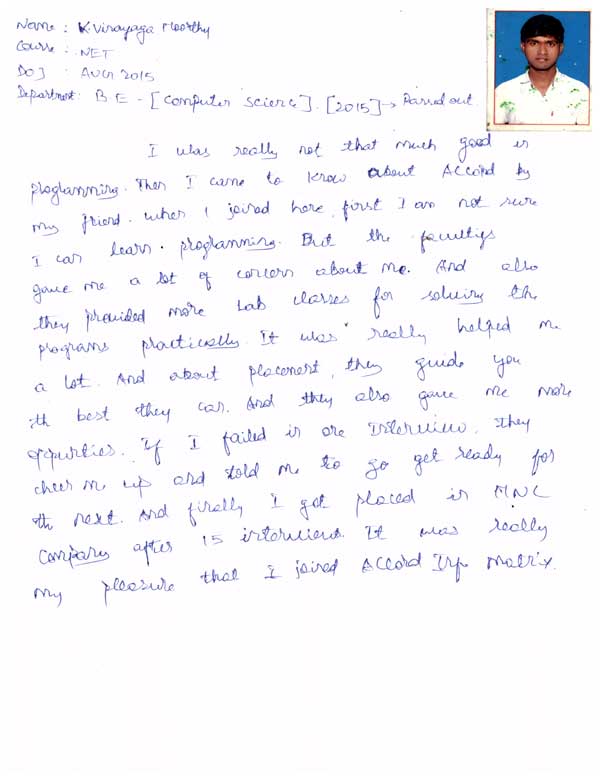 Name : K.Vinayaga Moorthy
Course : .NET
DOJ : AUG 2015
Department: B E - [Computer Science]. [2015] → Passed out.
I was really not that much good in
programming. Then I came to know about Accord by
my friend. when I joined here, first I am not sure
I can learn programming. But the facultys
gave me a lot of concern about me. And also
they provided more Lab classes for solving the
programs practically. It was really helped me
a lot. And about placement, they guide you
th best they can. And they also gave me more
oppurties. If I failed in one Interview, they
cheer me up and told me to go get ready for
th next. And finally I got placed in MNC
Company after 15 interviews. It was really
my pleasure that I joined Accord Info Matrix.